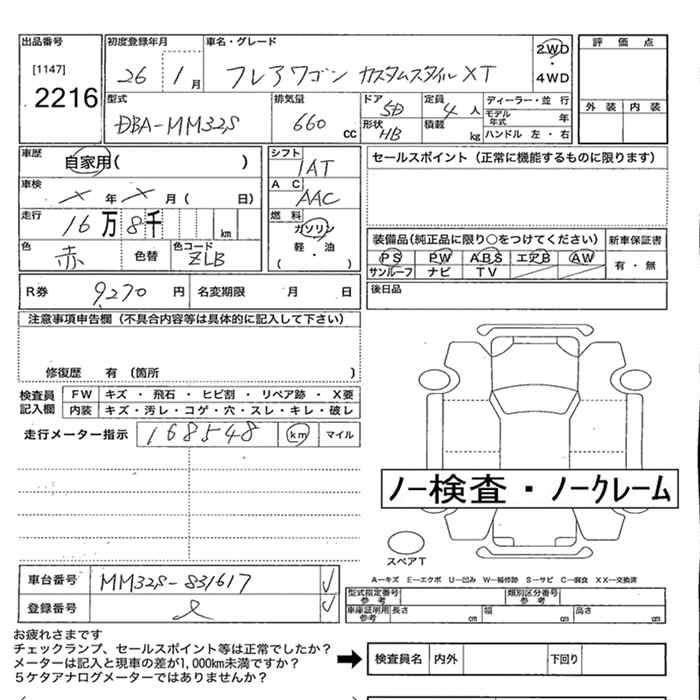 出品番号 初度登録年月 車名・グレード 評価点
[1147] 26 1月 フレアワゴン カスタムスタイル XT 2WD・4WD
2216
型式 排気量 ドア 5D 定員 4人 ディーラー・並行 外装 内装
DBA-MM32S 660cc 形状 HB 積載 kg モデル年式 年
ハンドル 左・右
車歴 自家用( ) シフト 1AT セールスポイント(正常に機能するものに限ります)
車検 × 年 × 月( 日) AC AAC
走行 16万8千 km 燃料 ガソリン 軽・油 ( ) 装備品(純正品に限り○をつけてください) 新車保証書
色 赤 色替 色コード ZLB PS PW ABS エアB AW 有・無
サンルーフ ナビ TV
R券 9,270円 名変期限 月 日 後日品
注意事項申告欄(不具合内容等は具体的に記入して下さい)
修復歴 有(箇所 )
検査員記入欄 FW キズ・飛石・ヒビ割・リペア跡・X要
内装 キズ・汚レ・コゲ・穴・スレ・キレ・破レ
走行メーター指示 168548 km マイル
ノー検査・ノークレーム
スペアT
A―キズ E―エクボ U―凹み W―補修跡 S―サビ C―腐食 XX―交換済
車台番号 MM32S-831617 ✓
型式指定番号 参考 類別区分番号 参考
登録番号 ✓ 車庫証明用 参考 長さ cm 幅 cm 高さ cm
お疲れさまです
チェックランプ、セールスポイント等は正常でしたか?
メーターは記入と現車の差が1,000km未満ですか? ➡ 検査員名 内外 下回り
5ケタアナログメーターではありませんか?